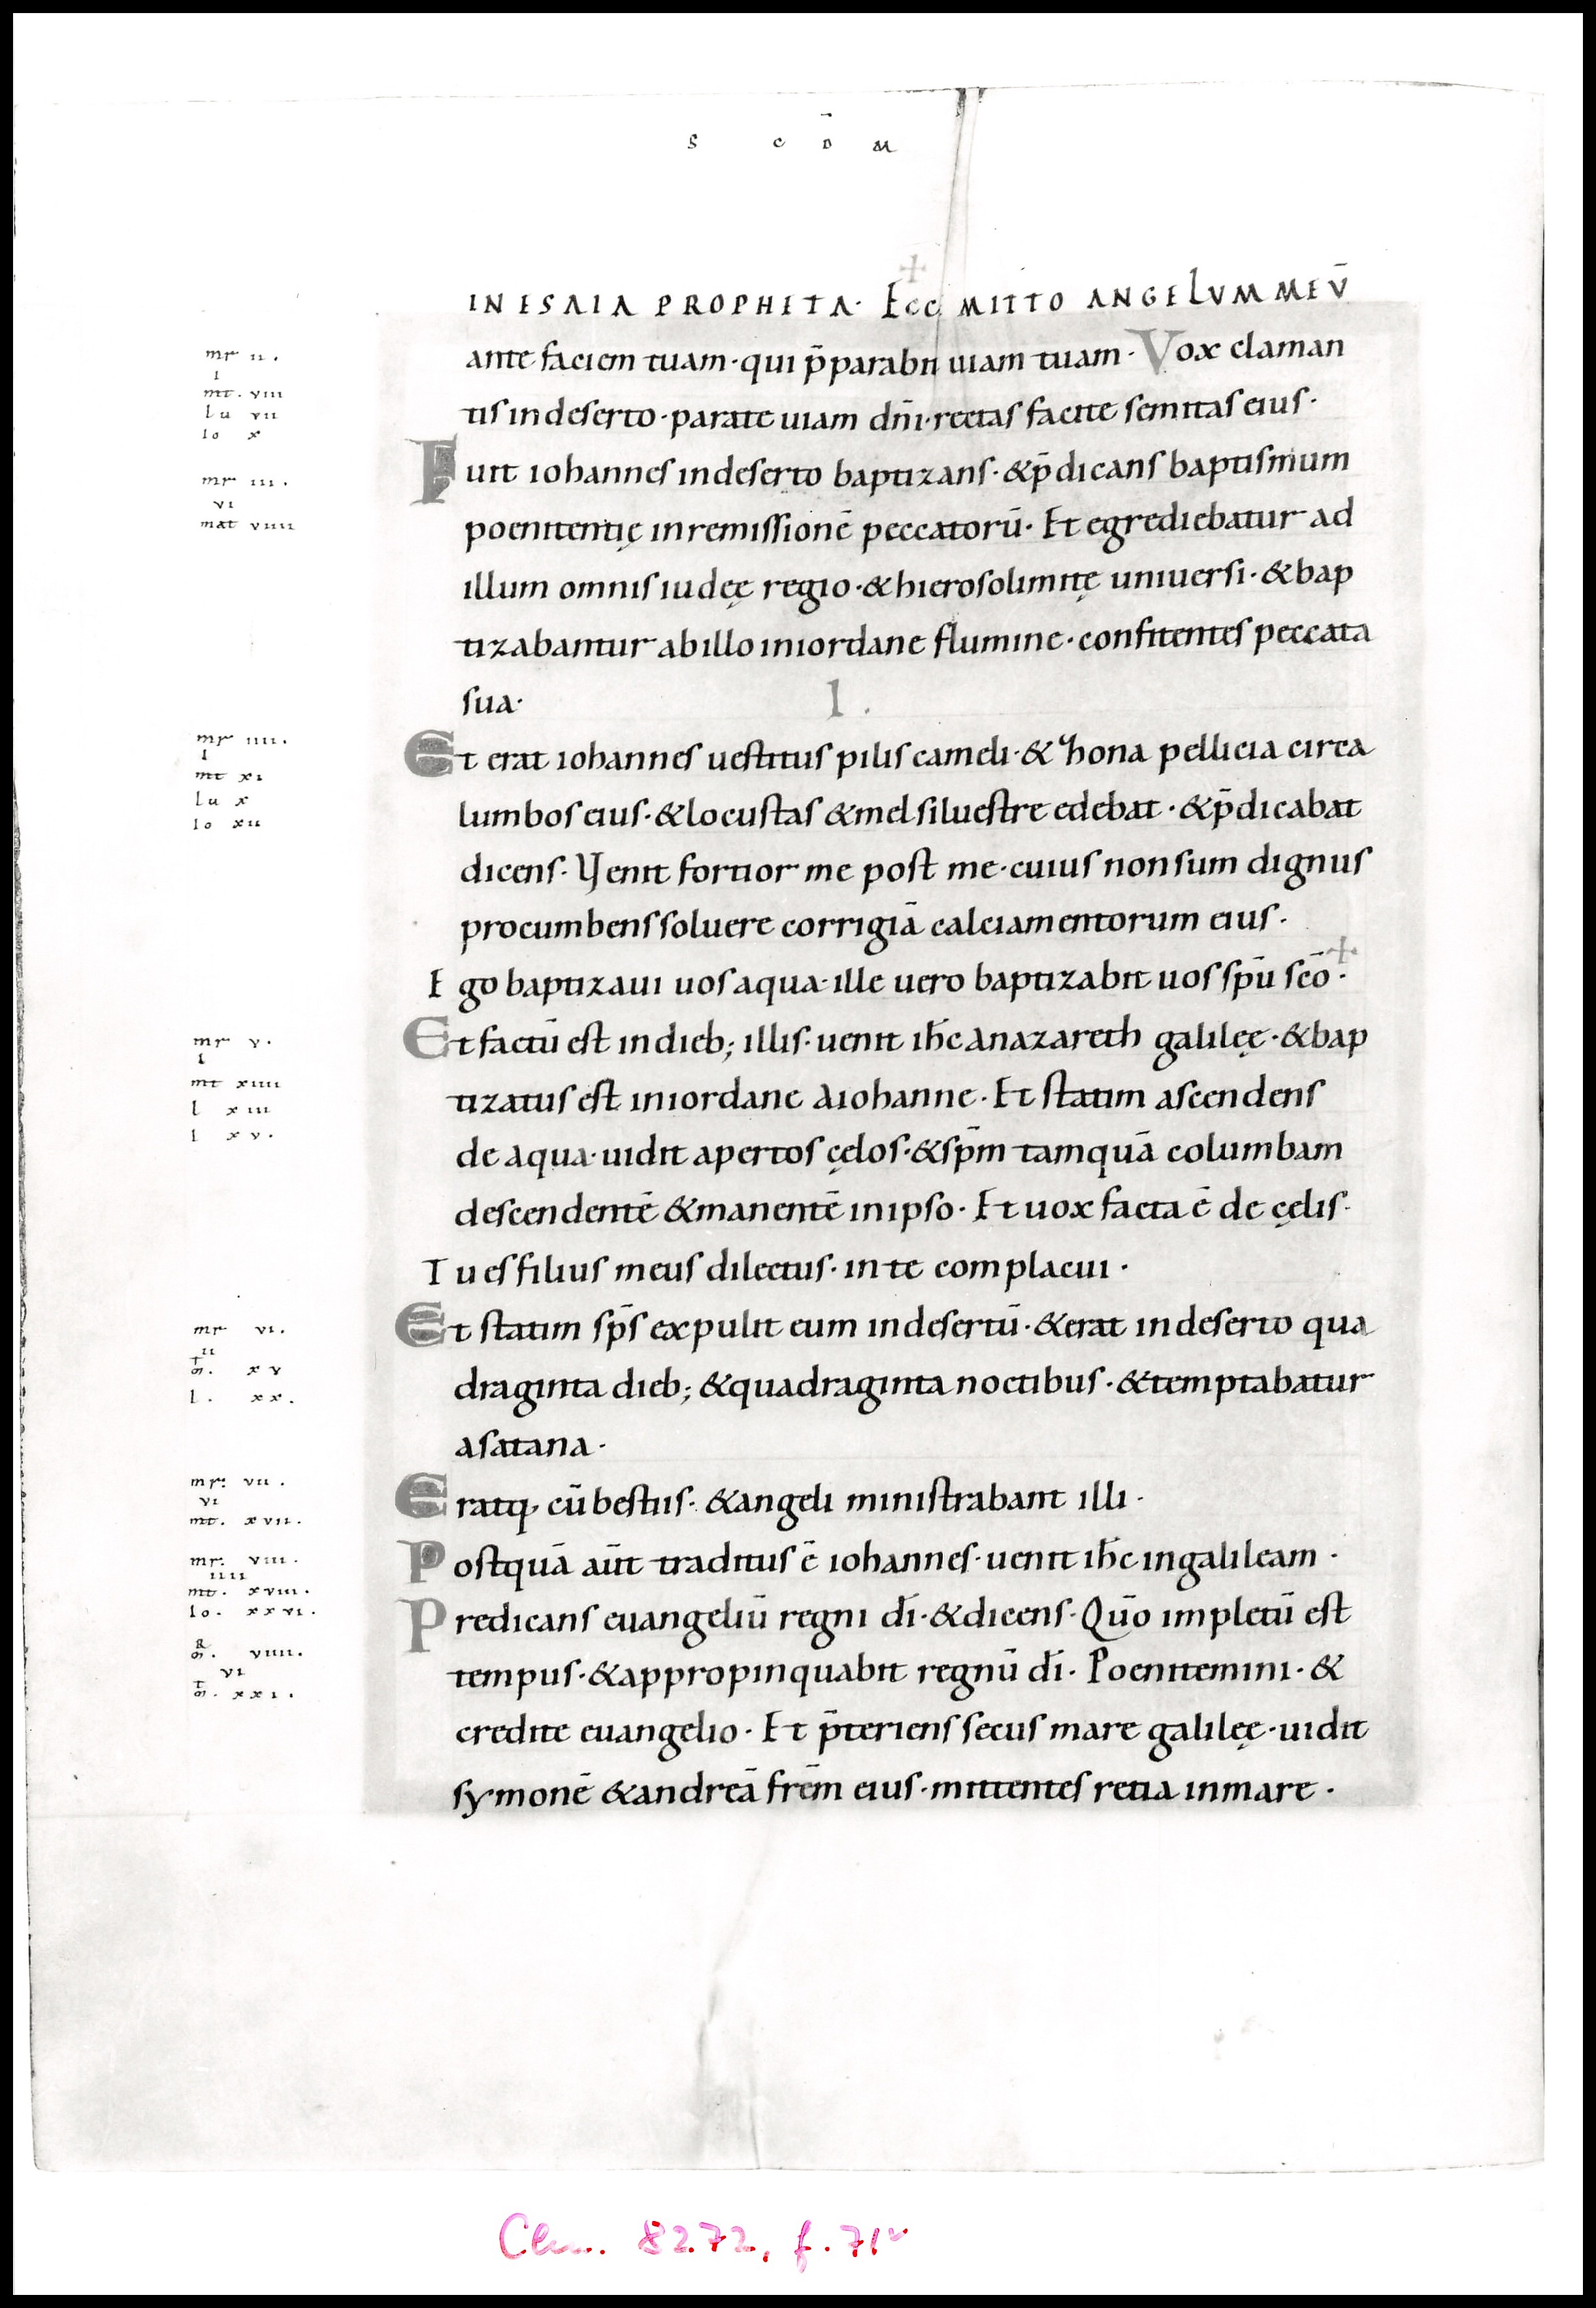 S C D̄ M
IN ESAIA PROPHETA· Ecce MITTO ANGELVM MEV̄
mr ii.
ante faciem tuam· qui p̄parabit uiam tuam· Vox claman
i
mt. viii
lu vii
io x
tis in deserto· parate uiam dn̄i· rectas facite semitas eius·
mr iii.
Fuit iohannes in deserto baptizans· & p̄dicans baptismum
vi
mat viiii
poenitentię in remissionē peccatorū· Et egrediebatur ad
illum omnis iudęę regio· & hierosolimitę uniuersi· & bap
tizabantur ab illo in iordane flumine· confitentes peccata
sua·
l.
mr iiii.
Et erat iohannes uestitus pilis cameli· & zona pellicia circa
i
mt xi
lu x
io xii
lumbos eius· & locustas & mel siluestre edebat· & p̄dicabat
dicens· Uenit fortior me post me· cuius non sum dignus
procumbens soluere corrigiā calciamentorum eius·
Ego baptizaui uos aqua· ille uero baptizabit uos sp̄u sc̄o·
mr v.
Et factū est in dieb; illis· uenit ih̄c a nazareth galilęę· & bap
i
mt xiiii
l xiii
l xv.
tizatus est in iordane a iohanne· Et statim ascendens
de aqua· uidit apertos cęlos· & sp̄m tamquā columbam
descendentē & manentē in ipso· Et uox facta ē de cęlis·
Tu es filius meus dilectus· in te complacui·
mr vi.
Et statim sp̄s expulit eum in desertū· & erat in deserto qua
ii
mt. xv
l. xx.
draginta dieb; & quadraginta noctibus· & temptabatur
a satana·
mr. vii.
Eratq; cū bestiis· & angeli ministrabant illi·
vi
mt. xvii.
mr. viii.
Postquā aūt traditus ē iohannes· uenit ih̄c in galileam·
iiii
mt. xviii.
io. xxvi.
Predicans euangeliū regni dī· & dicens· Qūo impletū est
mr. viiii.
vi
mt. xxi.
tempus· & appropinquabit regnū dī· Poenitemini· &
credite euangelio· Et p̄teriens secus mare galilęę· uidit
symonē & andreā frēm eius· mittentes retia in mare·
Clm. 8272, f. 71v